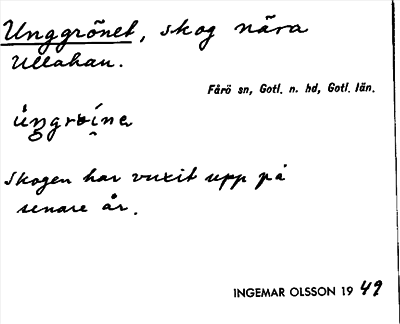 Unggrönet, skog nära
Ullahau.
Fårö sn, Gotl. n. hd, Gotl. län.
Skogen har vuxit upp på
senare år.
INGEMAR OLSSON 19 49